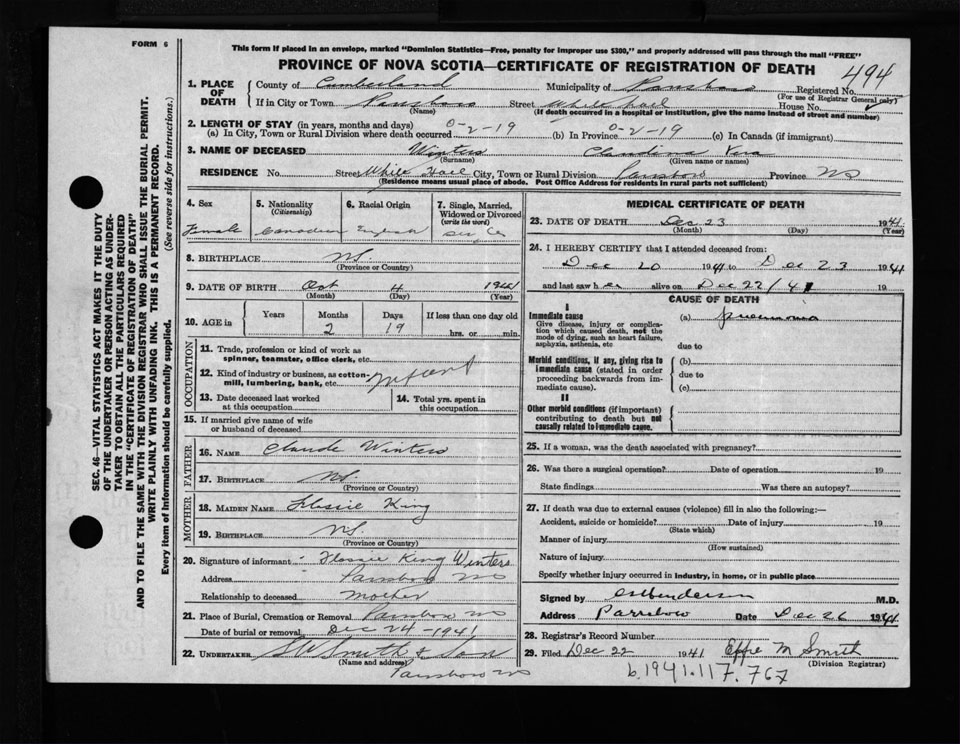 FORM 6
This form if placed in an envelope, marked "Dominion Statistics—Free, penalty for improper use $300," and properly addressed will pass through the mail "FREE"
PROVINCE OF NOVA SCOTIA—CERTIFICATE OF REGISTRATION OF DEATH
494
1. PLACE OF DEATH
County of Cumberland Municipality of Parrsboro Registered No.
(For use of Registrar General only)
If in City or Town Parrsboro Street White Hall House No.
(Name) (If death occurred in a hospital or institution, give the name instead of street and number)
2. LENGTH OF STAY (in years, months and days)
(a) In City, Town or Rural Division where death occurred 0-2-19 (b) In Province 0-2-19 (c) In Canada (if immigrant)
3. NAME OF DECEASED Winters Claudina Vera
(Surname) (Given name or names)
RESIDENCE No Street White Hall City, Town or Rural Division Parrsboro Province NS
(Residence means usual place of abode. Post Office Address for residents in rural parts not sufficient)
4. Sex 5. Nationality (Citizenship) 6. Racial Origin 7. Single, Married, Widowed or Divorced (write the word)
Female Canadian English
8. BIRTHPLACE NS.
(Province or Country)
9. DATE OF BIRTH Oct 4 1941
(Month) (Day) (Year)
10. AGE in Years Months Days If less than one day old
2 19 hrs. or min.
OCCUPATION
11. Trade, profession or kind of work as spinner, teamster, office clerk, etc.
12. Kind of industry or business, as cotton-mill, lumbering, bank, etc. Infant
13. Date deceased last worked at this occupation 14. Total yrs. spent in this occupation
15. If married give name of wife or husband of deceased
FATHER
16. NAME Claude Winters
17. BIRTHPLACE NS.
(Province or Country)
MOTHER
18. MAIDEN NAME Flossie King
19. BIRTHPLACE NS
(Province or Country)
20. Signature of informant Flossie King Winters
Address Parrsboro NS
Relationship to deceased mother
21. Place of Burial, Cremation or Removal Parrsboro NS
Date of burial or removal Dec 24-1941
22. UNDERTAKER Smith & Son
(Name and address)
Parrsboro NS
MEDICAL CERTIFICATE OF DEATH
23. DATE OF DEATH Dec 23 1941
(Month) (Day) (Year)
24. I HEREBY CERTIFY that I attended deceased from:
Dec 20 1941 to Dec 23 1941
and last saw her alive on Dec 22/41 19
CAUSE OF DEATH
I
Immediate cause
Give disease, injury or complication which caused death, not the mode of dying, such as heart failure, asphyxia, asthenia, etc
(a) Pneumonia
due to
Morbid conditions, if any, giving rise to immediate cause (stated in order proceeding backwards from immediate cause).
(b)
due to
(c)
II
Other morbid conditions (if important) contributing to death but not causally related to immediate cause.
25. If a woman, was the death associated with pregnancy?
26. Was there a surgical operation? Date of operation 19
State findings Was there an autopsy?
27. If death was due to external causes (violence) fill in also the following:—
Accident, suicide or homicide? Date of injury 19
(State which)
Manner of injury
(How sustained)
Nature of injury
Specify whether injury occurred in industry, in home, or in public place
Signed by Henderson M.D.
Address Parrsboro Date Dec 26 1941
28. Registrar's Record Number
29. Filed Dec 22 1941 Effie M Smith
(Division Registrar)
b.1941.117.767
SEC. 46—VITAL STATISTICS ACT MAKES IT THE DUTY
OF THE UNDERTAKER OR PERSON ACTING AS UNDER-
TAKER TO OBTAIN ALL THE PARTICULARS REQUIRED
IN THE "CERTIFICATE OF REGISTRATION OF DEATH"
AND TO FILE THE SAME WITH THE DIVISION REGISTRAR WHO SHALL ISSUE THE BURIAL PERMIT.
WRITE PLAINLY WITH UNFADING INK. THIS IS A PERMANENT RECORD.
Every item of information should be carefully supplied. (See reverse side for instructions.)